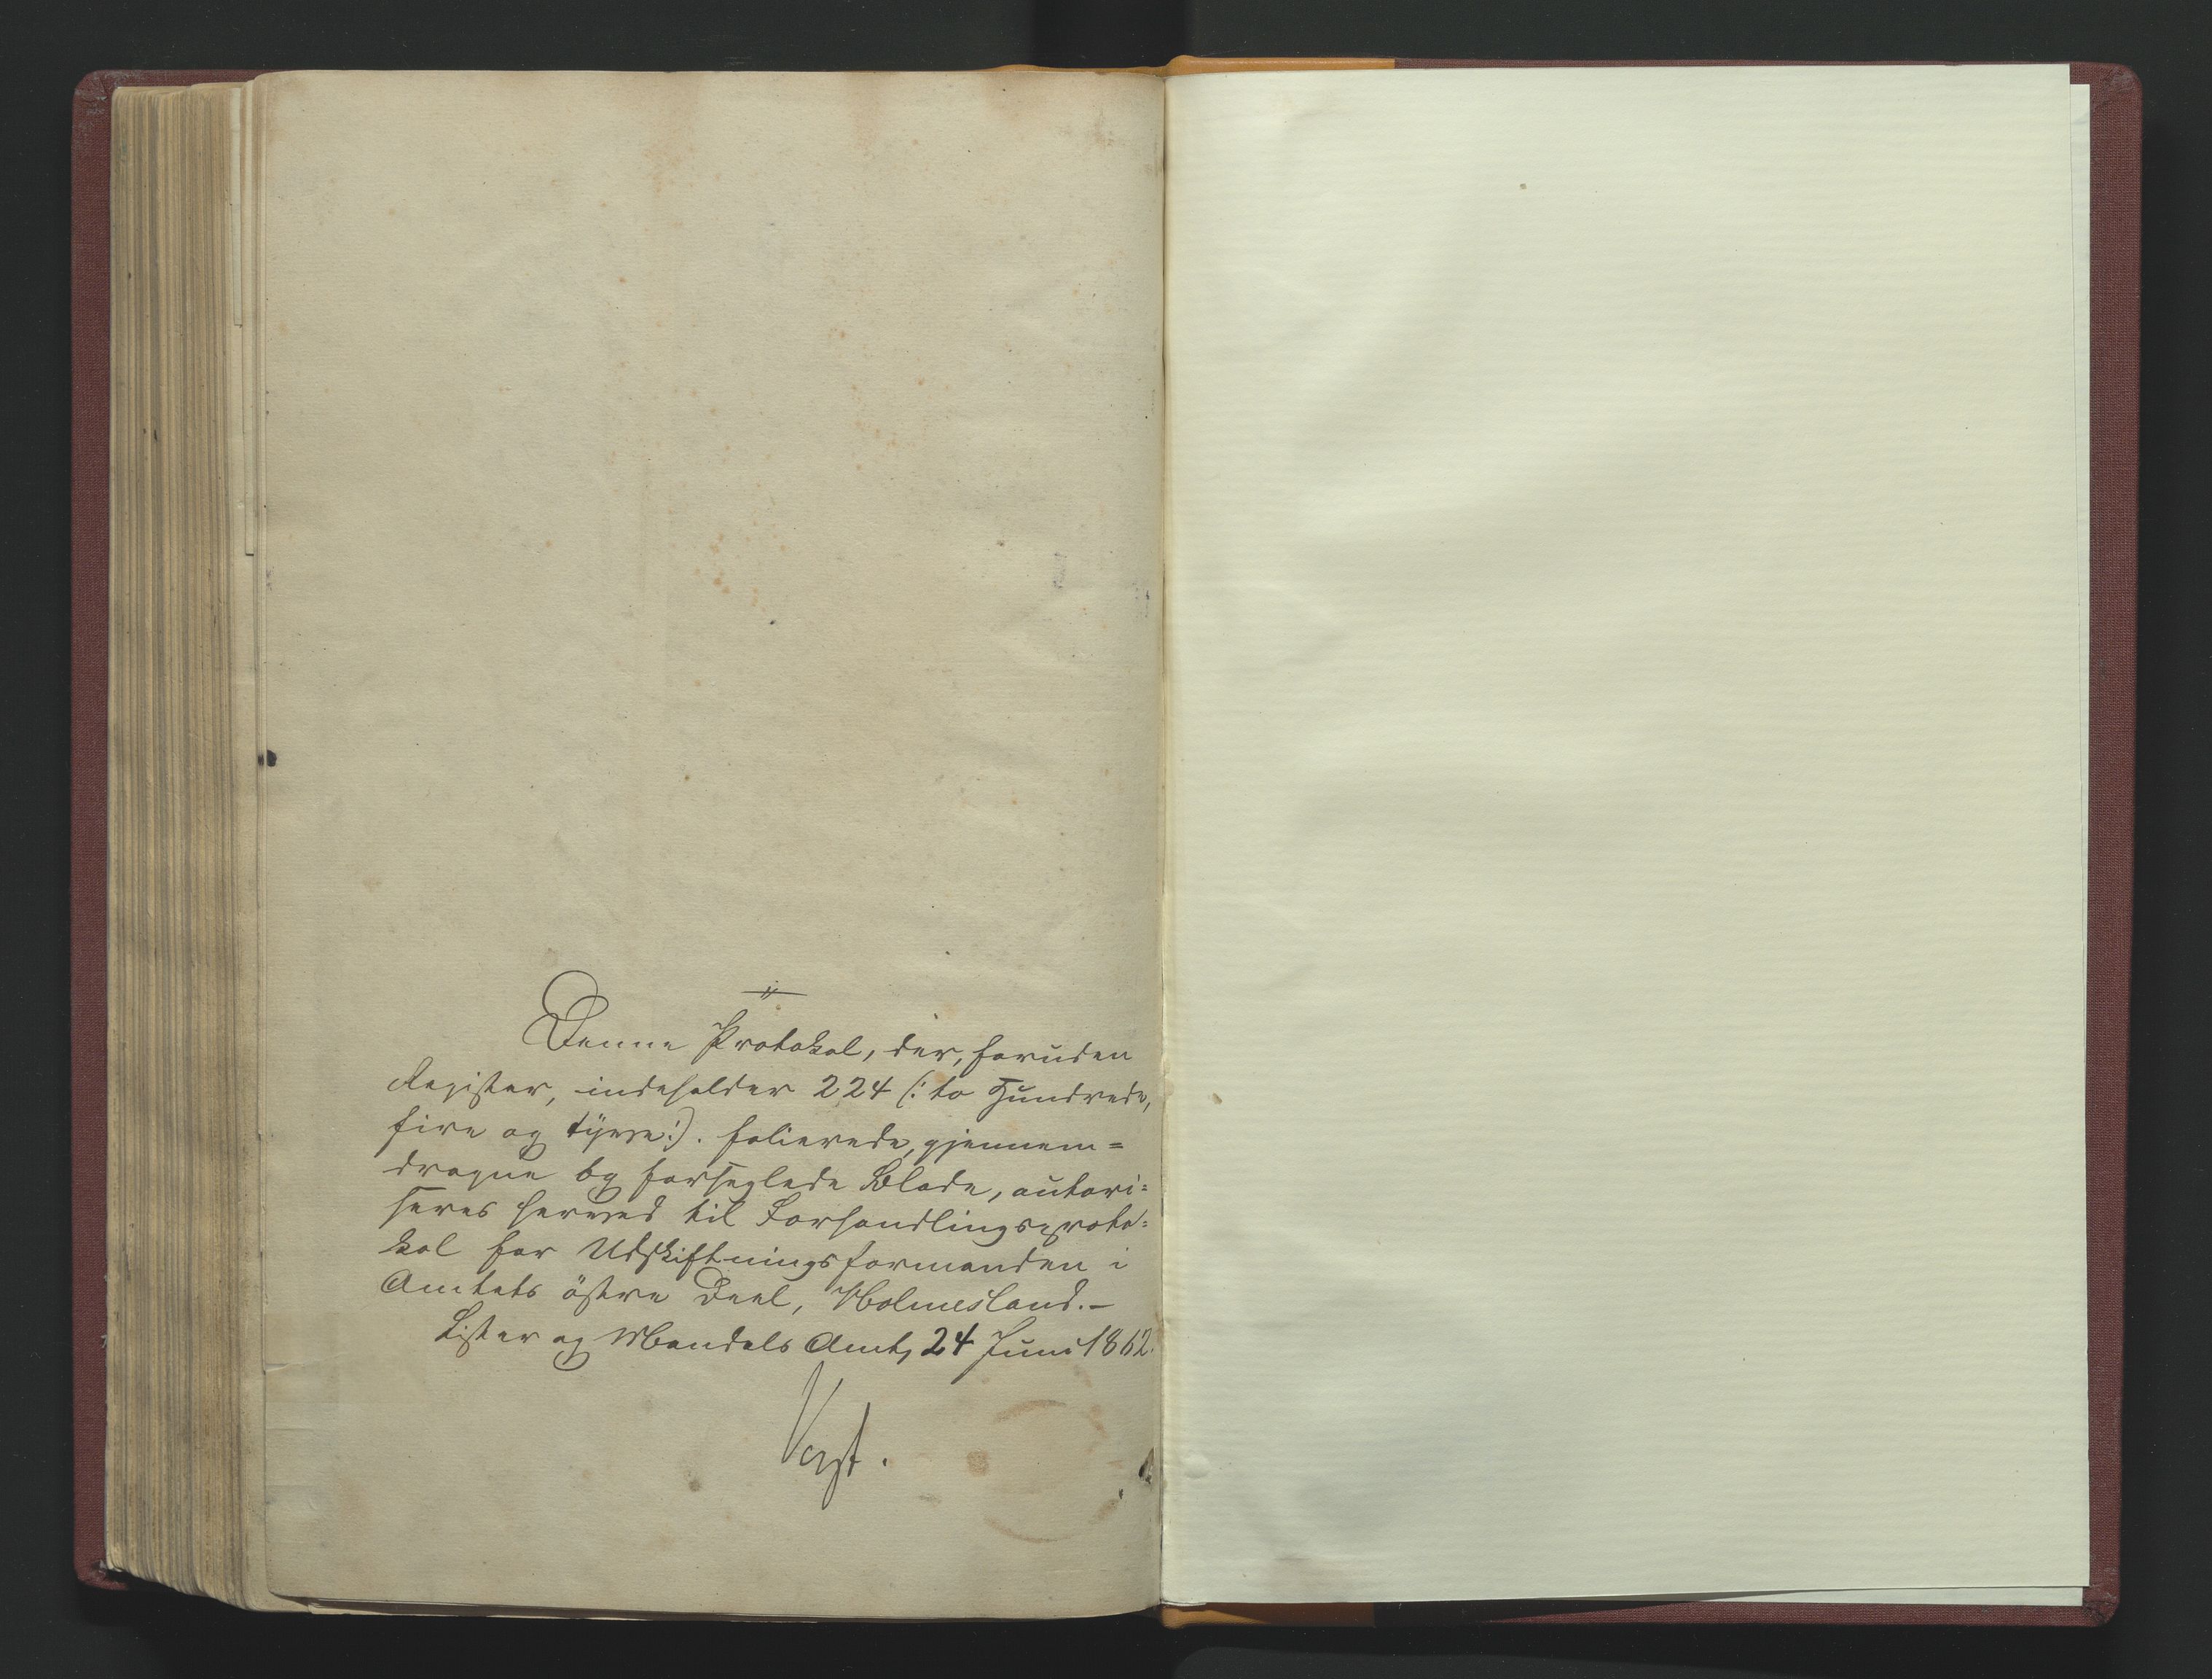 Denne Protokol, der, foruden
Register, indeholder 224 (: to Hundrede,
fire og tyve :). folierede, gjennem=
dragne og forseglede Blade, autori=
seres herved til Forhandlingsproto=
kol for Udskiftningsformanden i
Amtets östre Deel, Holmesland.-
Lister og Mandals Amt, 24 Juni 1862.
Vogt.